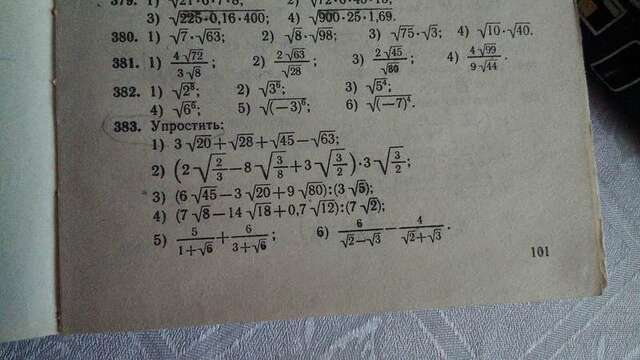 379. 1) √21·6·7·8; 2) √12·6·45·15;
3) √225·0,16·400; 4) √900·25·1,69.
380. 1) √7·√63; 2) √8·√98; 3) √75·√3; 4) √10·√40.
381. 1) 4√72/3√8; 2) 2√63/√28; 3) 2√45/√80; 4) 4√99/9√44.
382. 1) √2⁸; 2) √3⁶; 3) √5⁴;
4) √6⁶; 5) √(−3)⁶; 6) √(−7)⁴.
383. Упростить:
1) 3√20+√28+√45−√63;
2) (2√(2/3)−8√(3/8)+3√(3/2))·3√(3/2);
3) (6√45−3√20+9√80):(3√5);
4) (7√8−14√18+0,7√12):(7√2);
5) 5/(1+√6)+6/(3+√6); 6) 6/(√2−√3)−4/(√2+√3).
101